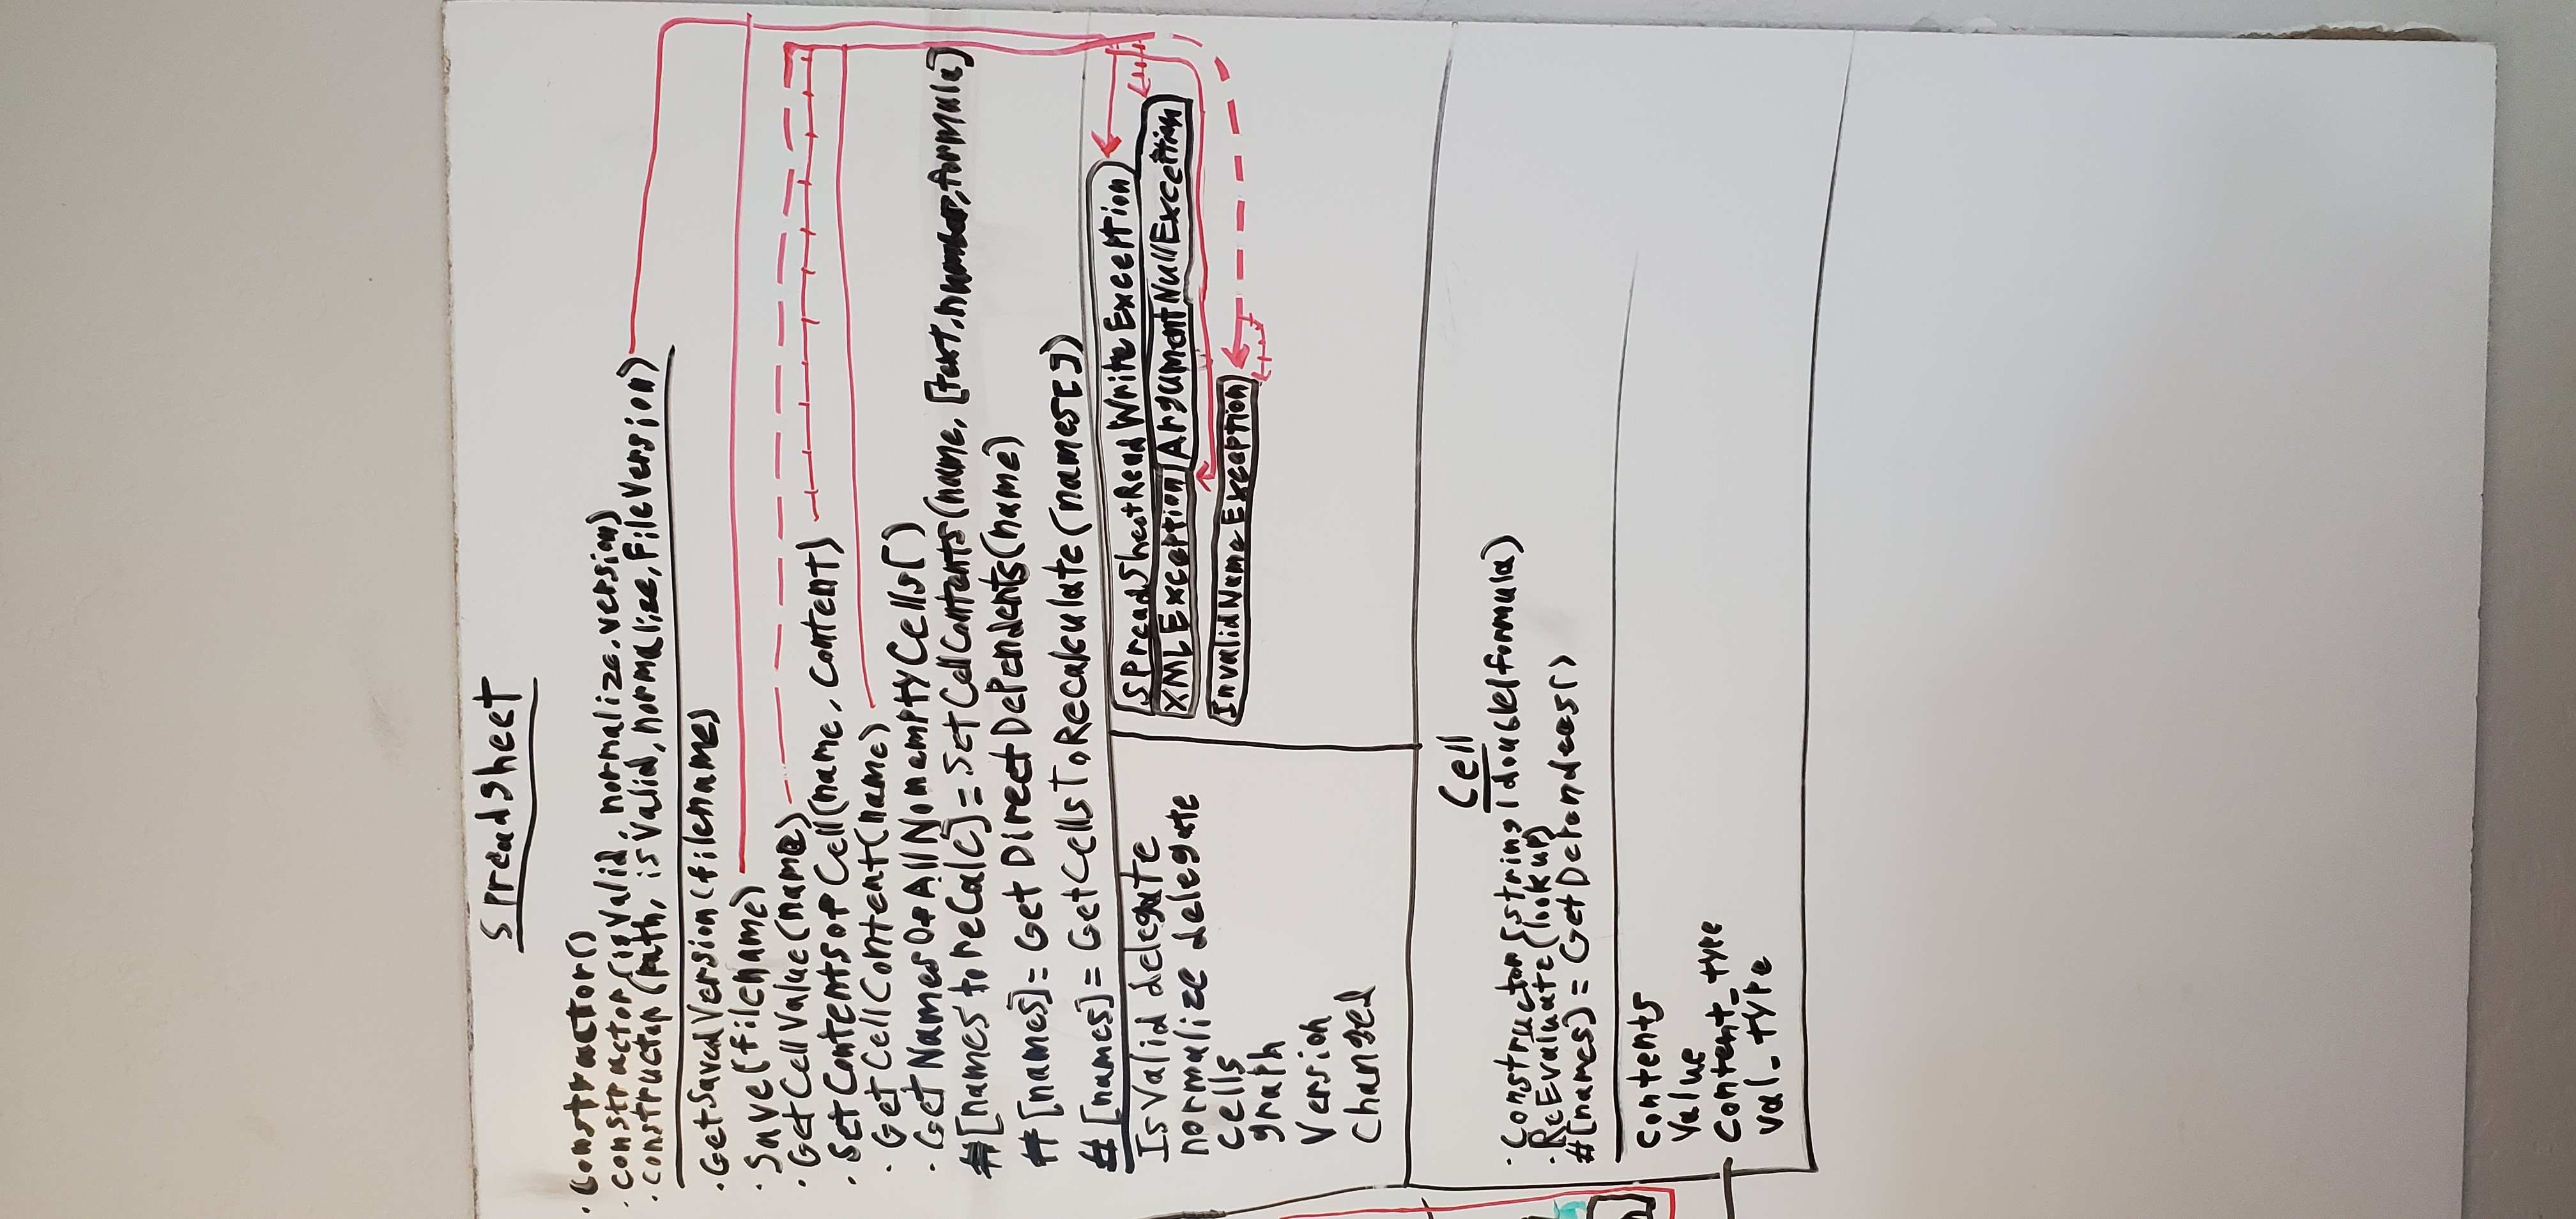 Spreadsheet
. Constructor()
. constructor(isValid, normalize, version)
. constructor(path, isValid, normalize, FileVersion)
. GetSavedVersion(filename)
. Save(filename)
. GetCellValue(name)
. SetContentsOfCell(name, content)
. GetCellContent(name)
. GetNamesOfAllNonemptyCells()
#[names to reCalc] = SetCellContents(name, [text, number, formula]
#[names] = GetDirectDependents(name)
#[names] = GetCellsToRecalculate(names[])
IsValid delegate
normalize delegate
cells
graph
Version
changed
SpreadSheetReadWriteException
XMLException ArgumentNullException
InvalidNameException
Cell
. Constructor(string|double|formula)
. ReEvaluate(lookup)
#[names] = GetDependees()
contents
Value
content_type
val_type